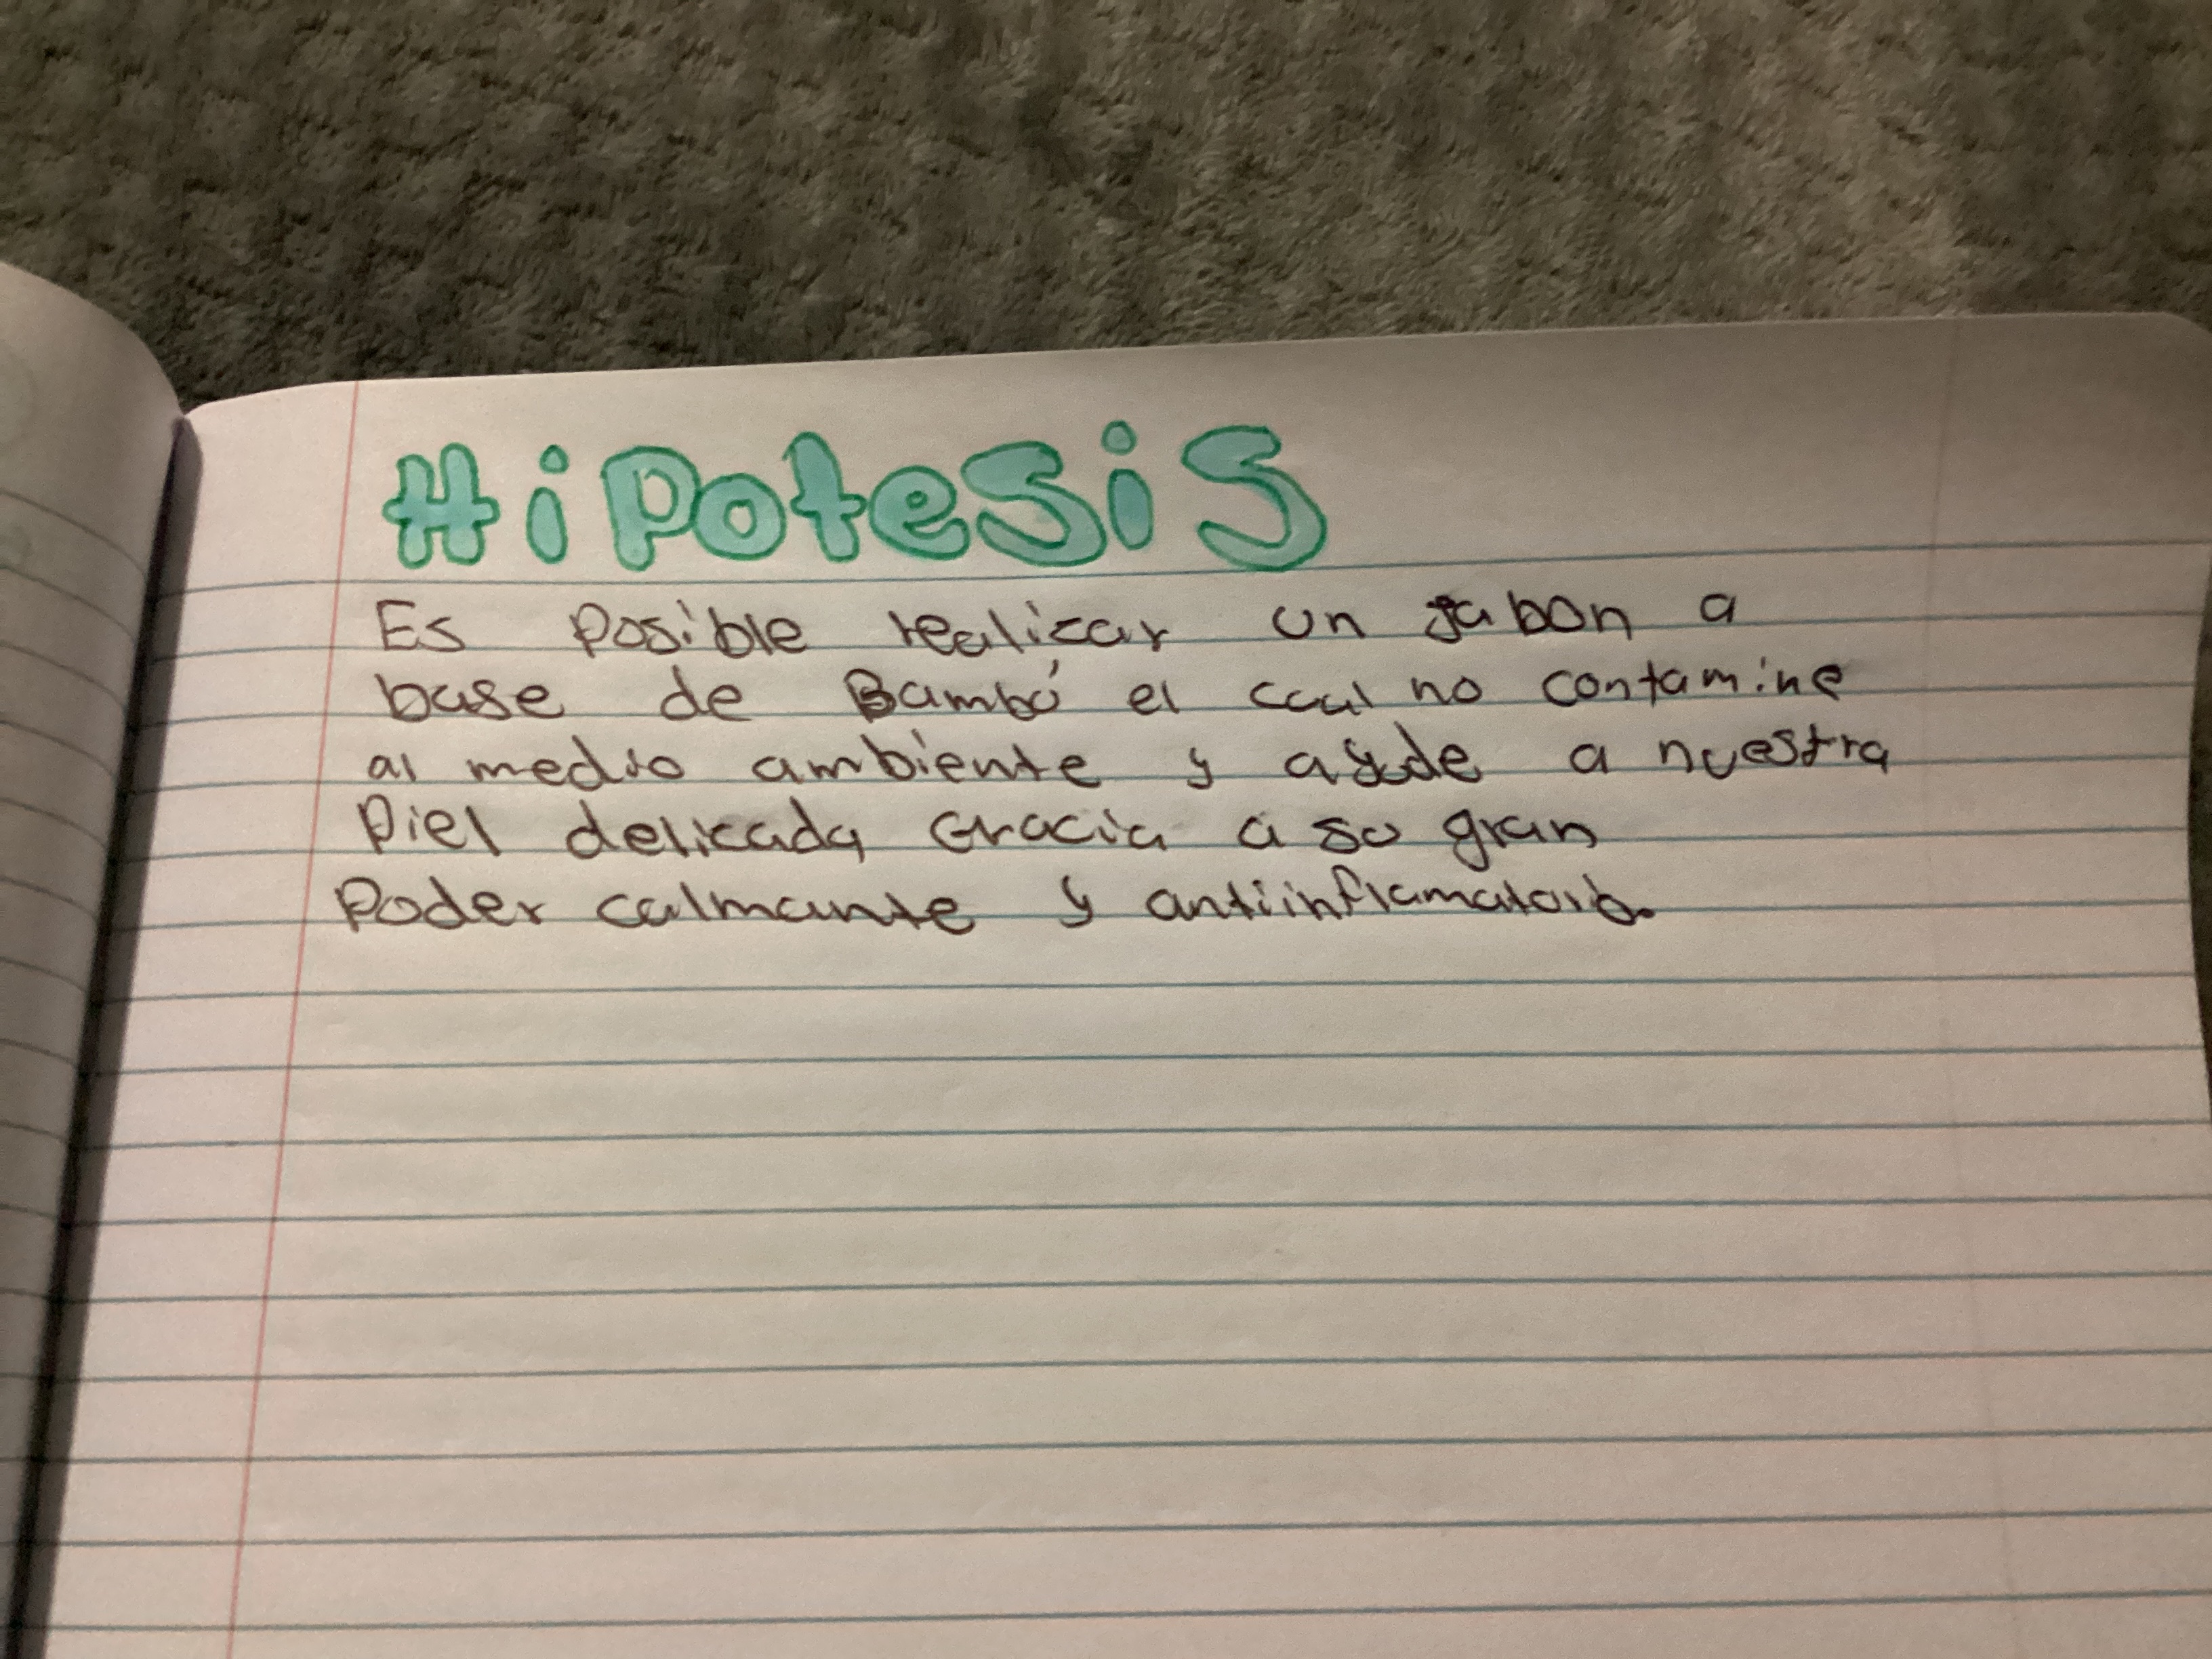 HipotesiS
Es posible realizar un Jabon a
base de Bambú el cual no contamine
al medio ambiente y ayude a nuestra
Piel delicada Gracia a su gran
Poder calmante y antiinflamatorio.